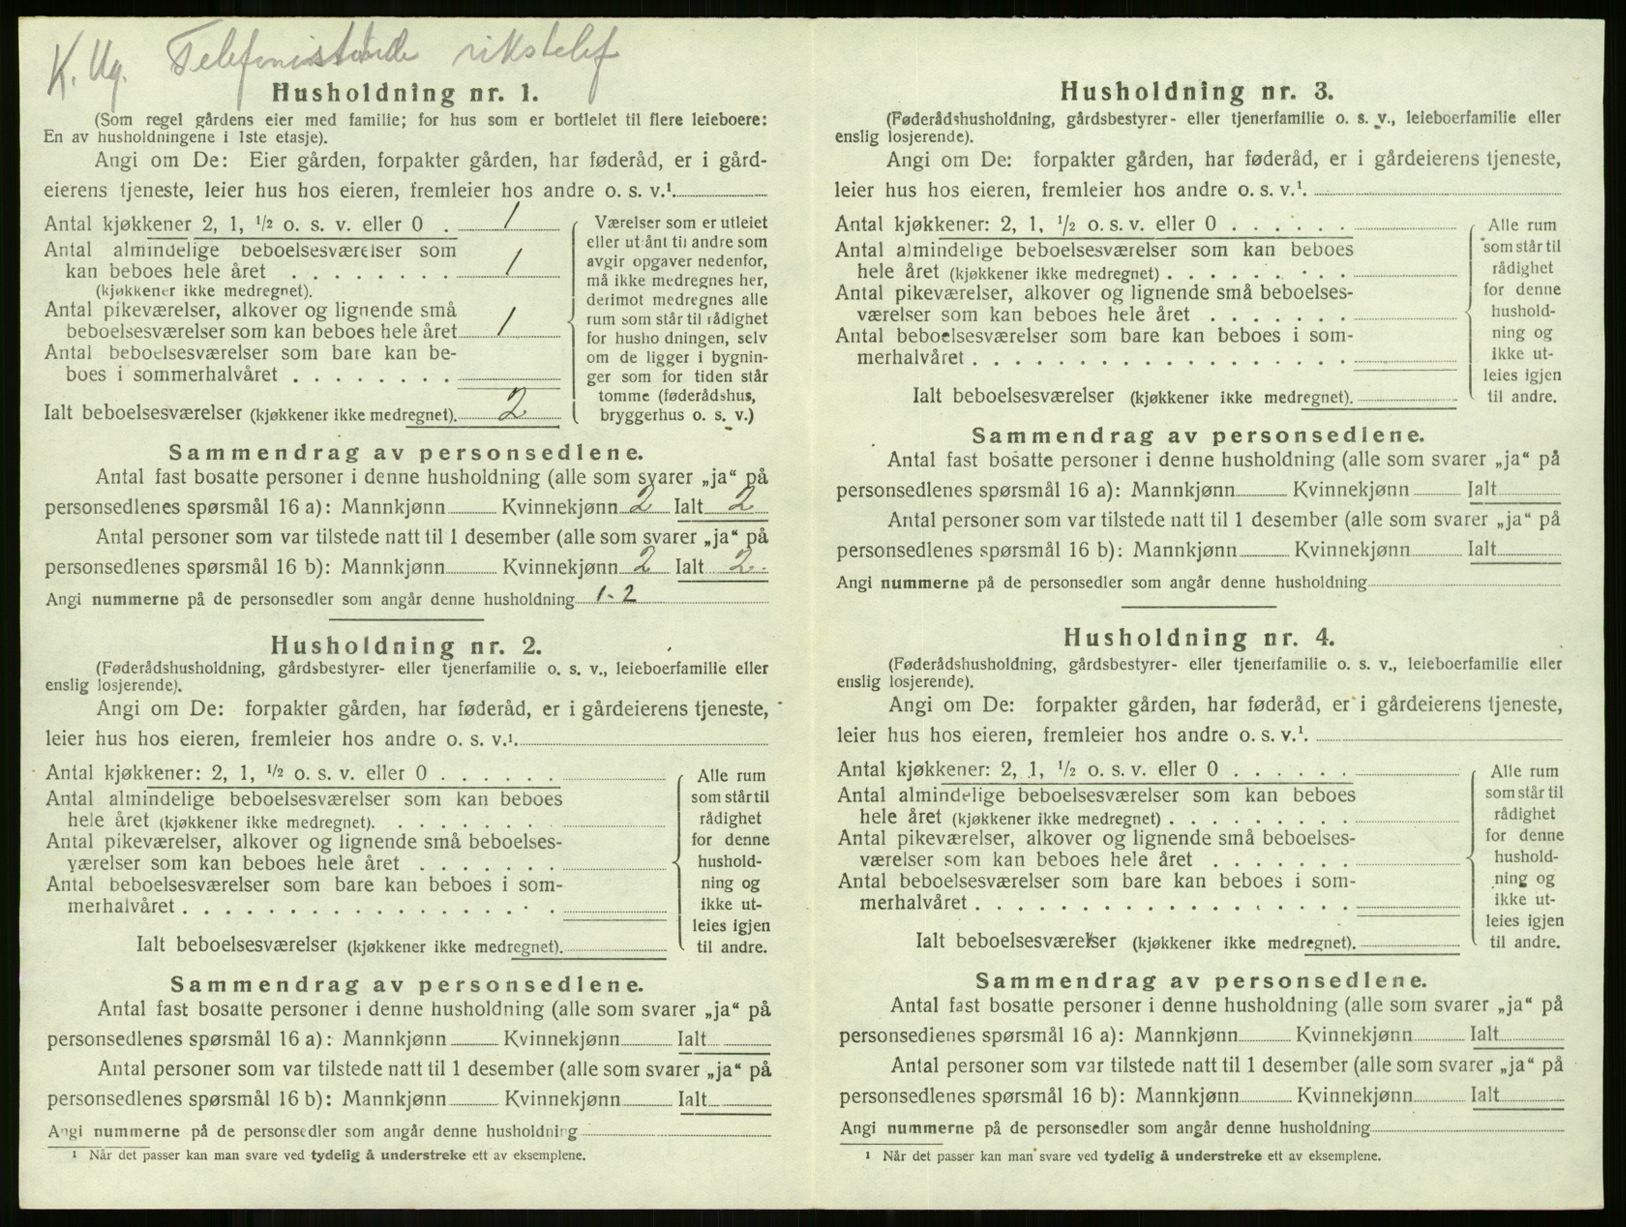 K. Ug. Telefonistinde rikstelef
Husholdning nr. 1.
(Som regel gårdens eier med familie; for hus som er bortleiet til flere leieboere:
En av husholdningene i 1ste etasje).
Angi om De: Eier gården, forpakter gården, har føderåd, er i gård-
eierens tjeneste, leier hus hos eieren, fremleier hos andre o. s. v.¹
Antal kjøkkener 2, 1, ½ o. s. v. eller 0 . 1
Antal almindelige beboelsesværelser som
kan beboes hele året . . . . . . . . 1
(kjøkkener ikke medregnet).
Antal pikeværelser, alkover og lignende små
beboelsesværelser som kan beboes hele året 1
Antal beboelsesværelser som bare kan be-
boes i sommerhalvåret . . . . . . . .
Ialt beboelsesværelser (kjøkkener ikke medregnet). 2
Værelser som er utleiet
eller utlånt til andre som
avgir opgaver nedenfor,
må ikke medregnes her,
derimot medregnes alle
rum som står til rådighet
for husholdningen, selv
om de ligger i bygnin-
ger som for tiden står
tomme (føderådshus,
bryggerhus o. s. v.)
Sammendrag av personsedlene.
Antal fast bosatte personer i denne husholdning (alle som svarer „ja“ på
personsedlenes spørsmål 16 a): Mannkjønn Kvinnekjønn 2 Ialt 2
Antal personer som var tilstede natt til 1 desember (alle som svarer „ja“ på
personsedlenes spørsmål 16 b): Mannkjønn Kvinnekjønn 2 Ialt 2.
Angi nummerne på de personsedler som angår denne husholdning 1-2
Husholdning nr. 2.
(Føderådshusholdning, gårdsbestyrer- eller tjenerfamilie o. s. v., leieboerfamilie eller
enslig losjerende).
Angi om De: forpakter gården, har føderåd, er i gårdeierens tjeneste,
leier hus hos eieren, fremleier hos andre o. s. v.¹.
Antal kjøkkener: 2, 1, ½ o. s. v. eller 0 . . . . . .
Antal almindelige beboelsesværelser som kan beboes
hele året (kjøkkener ikke medregnet). . . . . . . . .
Antal pikeværelser, alkover og lignende små beboelses-
værelser som kan beboes hele året . . . . . . .
Antal beboelsesværelser som bare kan beboes i som-
merhalvåret . . . . . . . . . . . . . . . . . .
Ialt beboelsesværelser (kjøkkener ikke medregnet).
Alle rum
som står til
rådighet
for denne
hushold-
ning og
ikke ut-
leies igjen
til andre.
Sammendrag av personsedlene.
Antal fast bosatte personer i denne husholdning (alle som svarer „ja“ på
personsedlenes spørsmål 16 a): Mannkjønn Kvinnekjønn Ialt
Antal personer som var tilstede natt til 1 desember (alle som svarer „ja“ på
personsedlenes spørsmål 16 b): Mannkjønn Kvinnekjønn Ialt
Angi nummerne på de personsedler som angår denne husholdning
¹ Når det passer kan man svare ved tydelig å understreke ett av eksemplene.
Husholdning nr. 3.
(Føderådshusholdning, gårdsbestyrer- eller tjenerfamilie o. s. v., leieboerfamilie eller
enslig losjerende).
Angi om De: forpakter gården, har føderåd, er i gårdeierens tjeneste,
leier hus hos eieren, fremleier hos andre o. s. v.¹.
Antal kjøkkener: 2, 1, ½ o. s. v. eller 0 . . . . . .
Antal almindelige beboelsesværelser som kan beboes
hele året (kjøkkener ikke medregnet) . . . . . . . . .
Antal pikeværelser, alkover og lignende små beboelses-
værelser som kan beboes hele året . . . . . . .
Antal beboelsesværelser som bare kan beboes i som-
merhalvåret . . . . . . . . . . . . . . . . . .
Ialt beboelsesværelser (kjøkkener ikke medregnet).
Alle rum
som står til
rådighet
for denne
hushold-
ning og
ikke ut-
leies igjen
til andre.
Sammendrag av personsedlene.
Antal fast bosatte personer i denne husholdning (alle som svarer „ja“ på
personsedlenes spørsmål 16 a): Mannkjønn Kvinnekjønn Ialt
Antal personer som var tilstede natt til 1 desember (alle som svarer „ja“ på
personsedlenes spørsmål 16 b): Mannkjønn Kvinnekjønn Ialt
Angi nummerne på de personsedler som angår denne husholdning
Husholdning nr. 4.
(Føderådshusholdning, gårdsbestyrer- eller tjenerfamilie o. s. v., leieboerfamilie eller
enslig losjerende).
Angi om De: forpakter gården, har føderåd, er i gårdeierens tjeneste,
leier hus hos eieren, fremleier hos andre o. s. v.¹.
Antal kjøkkener: 2, 1, ½ o. s. v. eller 0 . . . . . .
Antal almindelige beboelsesværelser som kan beboes
hele året (kjøkkener ikke medregnet) . . . . . . . . .
Antal pikeværelser, alkover og lignende små beboelses-
værelser som kan beboes hele året . . . . . . .
Antal beboelsesværelser som bare kan beboes i som-
merhalvåret . . . . . . . . . . . . . . . . . .
Ialt beboelsesværelser (kjøkkener ikke medregnet).
Alle rum
som står til
rådighet
for denne
hushold-
ning og
ikke ut-
leies igjen
til andre.
Sammendrag av personsedlene.
Antal fast bosatte personer i denne husholdning (alle som svarer „ja“ på
personsedlenes spørsmål 16 a): Mannkjønn Kvinnekjønn Ialt
Antal personer som var tilstede natt til 1 desember (alle som svarer „ja“ på
personsedlenes spørsmål 16 b): Mannkjønn Kvinnekjønn Ialt
Angi nummerne på de personsedler som angår denne husholdning
¹ Når det passer kan man svare ved tydelig å understreke ett av eksemplene.